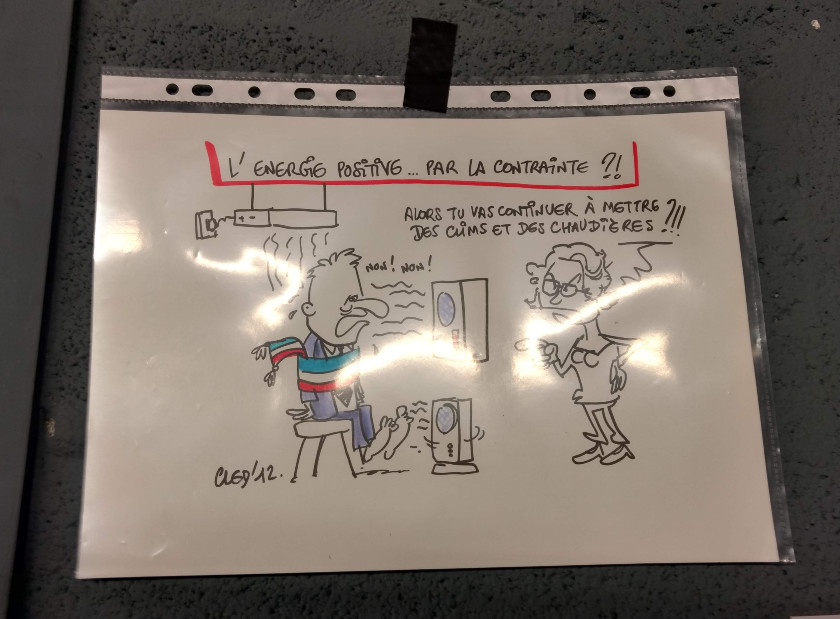 L'ENERGIE POSITIVE... PAR LA CONTRAINTE ?!
ALORS TU VAS CONTINUER À METTRE
DES CLIMS ET DES CHAUDIÈRES ?!!
NON! NON!
CLED'12.